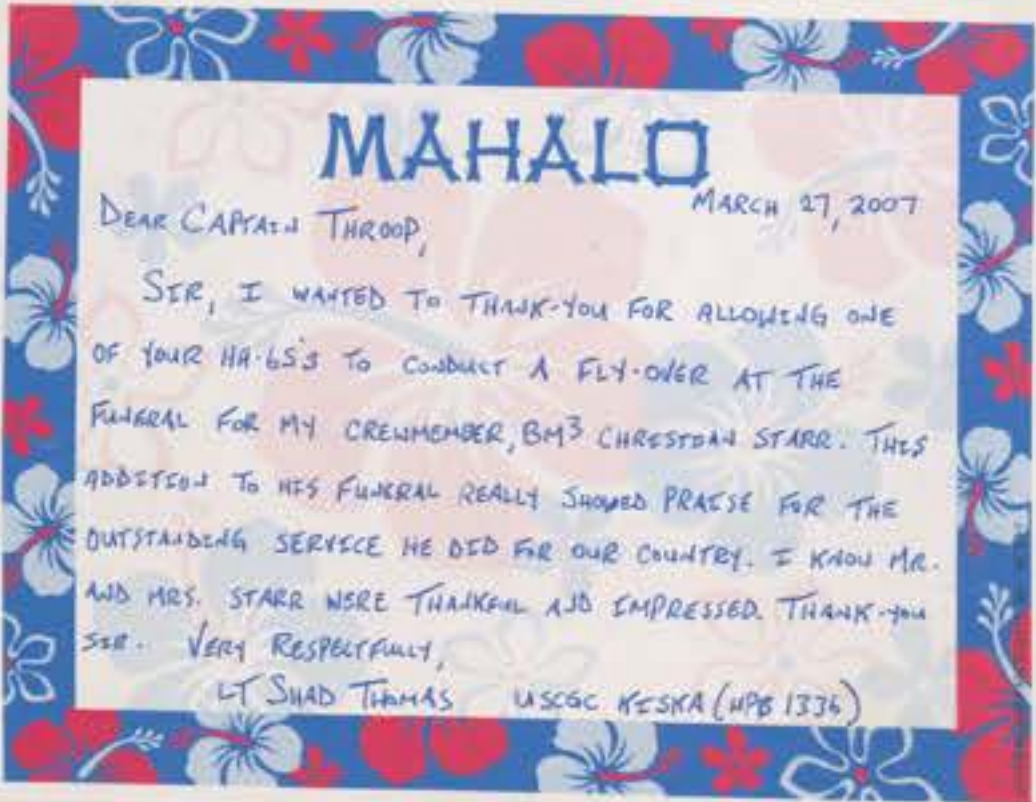 MAHALO
MARCH 27, 2007
DEAR CAPTAIN THROOP,
SIR, I WANTED TO THANK-YOU FOR ALLOWING ONE
OF YOUR HH-65'S TO CONDUCT A FLY-OVER AT THE
FUNERAL FOR MY CREWMEMBER, BM3 CHRISTIAN STARR. THIS
ADDITION TO HIS FUNERAL REALLY SHOWED PRAISE FOR THE
OUTSTANDING SERVICE HE DID FOR OUR COUNTRY. I KNOW MR.
AND MRS. STARR WERE THANKFUL AND IMPRESSED. THANK-YOU
SIR. VERY RESPECTFULLY,
LT SHAD THOMAS USCGC KISKA (WPB 1336)